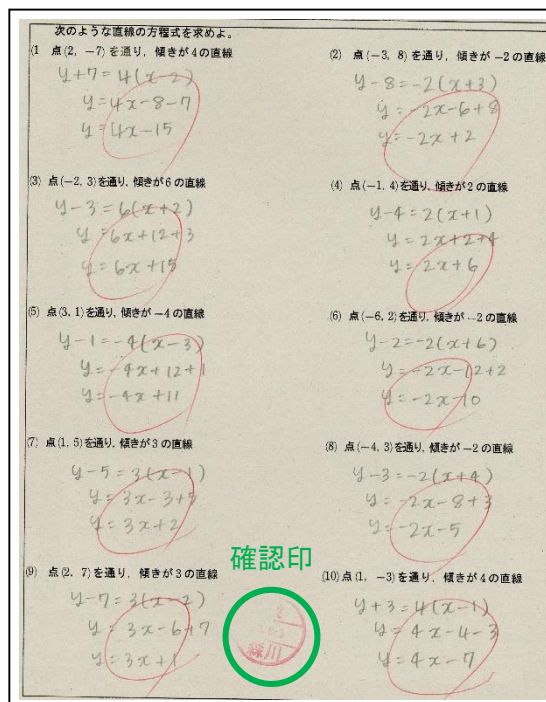 次のような直線の方程式を求めよ。
(1 点(2, −7)を通り, 傾きが4の直線
y+7=4(x-2)
y=4x-8-7
y=4x-15
(2) 点(−3, 8)を通り, 傾きが−2の直線
y-8=-2(x+3)
y=-2x-6+8
y=-2x+2
(3) 点(−2, 3)を通り, 傾きが6の直線
y-3=6(x+2)
y=6x+12+3
y=6x+15
(4) 点(−1, 4)を通り, 傾きが2の直線
y-4=2(x+1)
y=2x+2+4
y=2x+6
(5) 点(3, 1)を通り, 傾きが−4の直線
y-1=-4(x-3)
y=-4x+12+1
y=-4x+11
(6) 点(−6, 2)を通り, 傾きが−2の直線
y-2=-2(x+6)
y=-2x-12+2
y=-2x-10
(7) 点(1, 5)を通り, 傾きが3の直線
y-5=3(x-1)
y=3x-3+5
y=3x+2
(8) 点(−4, 3)を通り, 傾きが−2の直線
y-3=-2(x+4)
y=-2x-8+3
y=-2x-5
(9) 点(2, 7)を通り, 傾きが3の直線
y-7=3(x-2)
y=3x-6+7
y=3x+1
確認印
森川
(10) 点(1, −3)を通り, 傾きが4の直線
y+3=4(x-1)
y=4x-4-3
y=4x-7